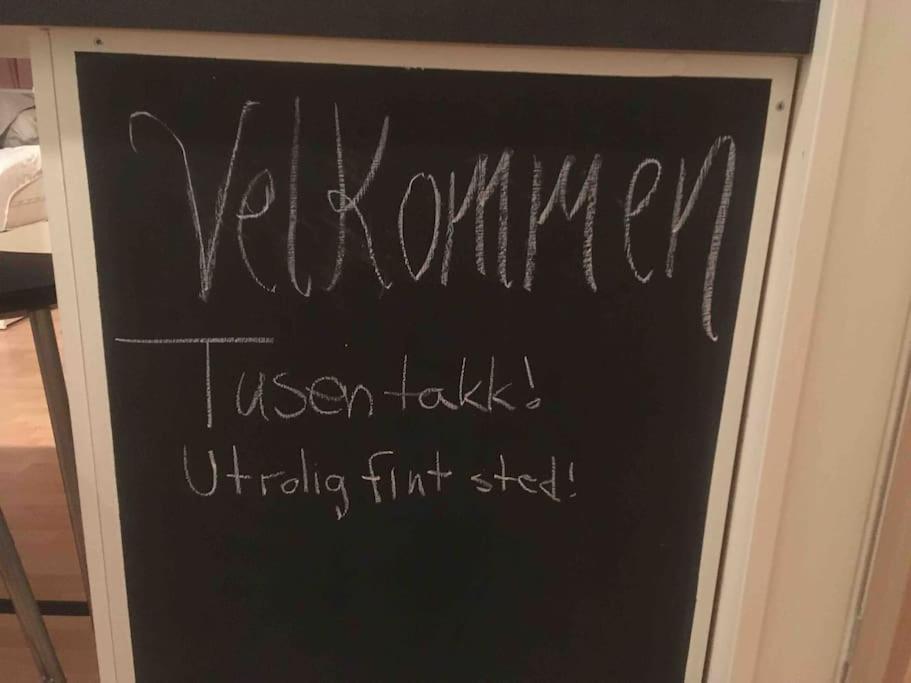 Velkommen
Tusen takk!
Utrolig fint sted!